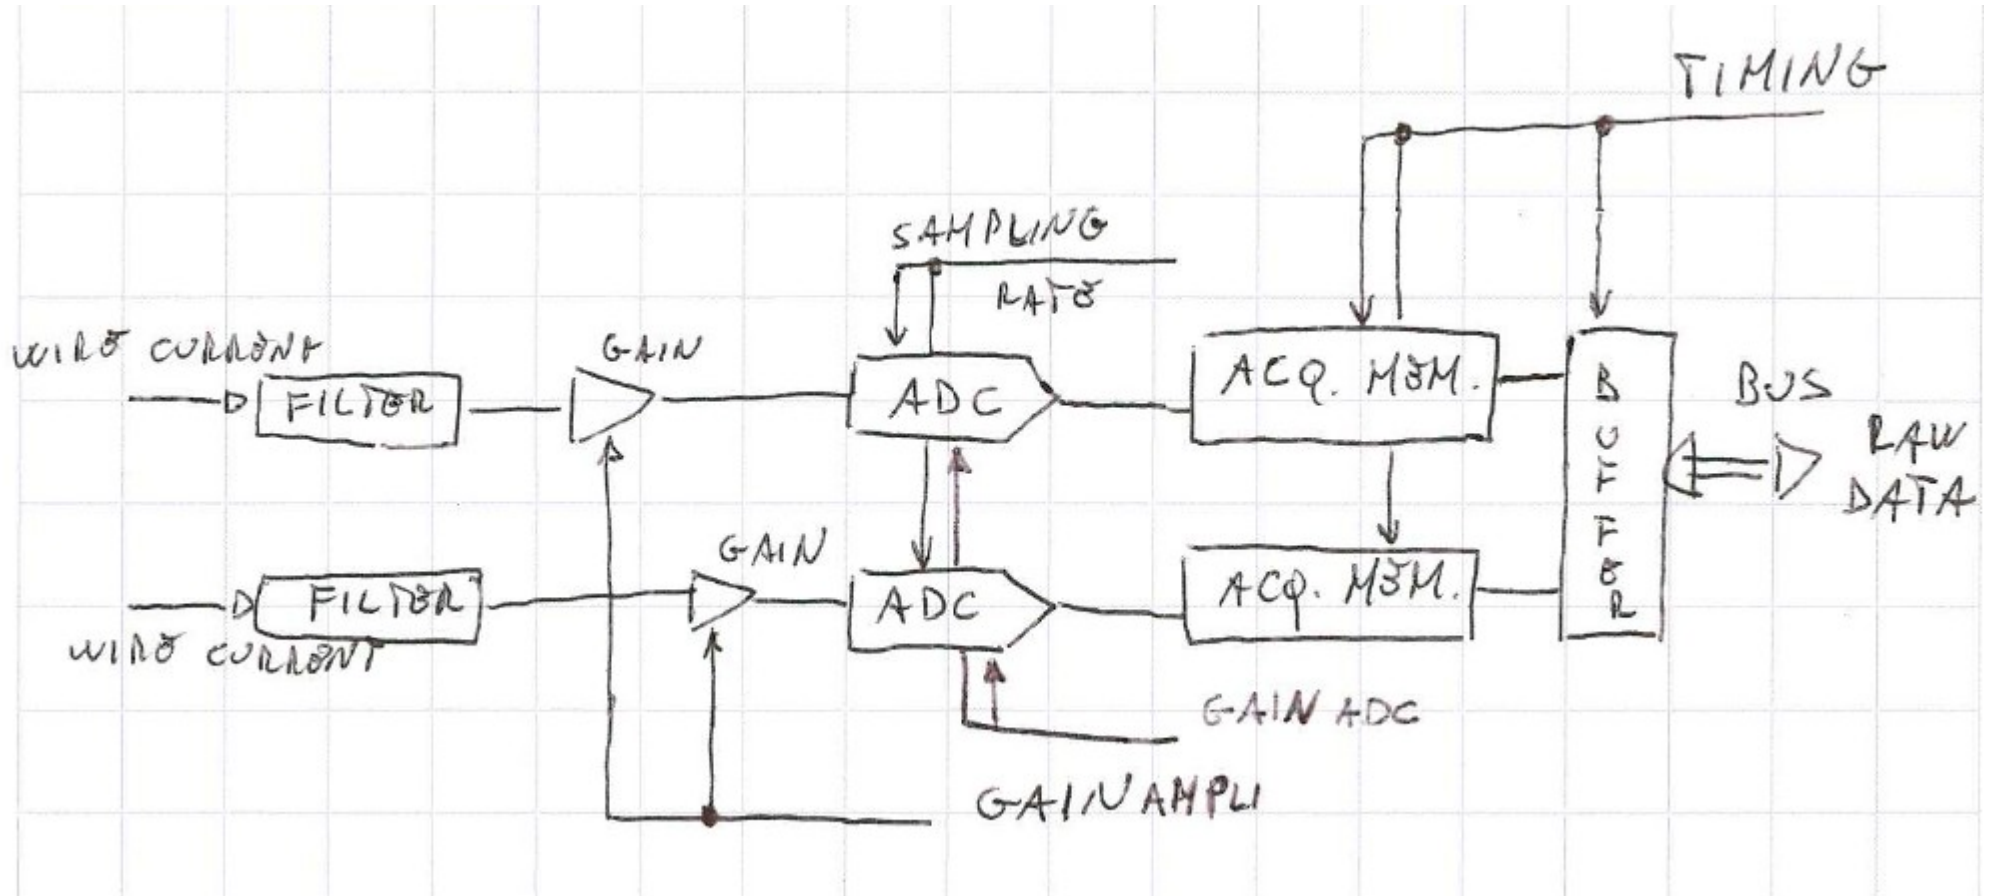 TIMING
SAMPLING
RATE
WIRE CURRENT
GAIN
FILTER
ADC
ACQ. MEM.
BUFFER
BUS
RAW
DATA
GAIN
FILTER
ADC
ACQ. MEM.
WIRE CURRENT
GAIN ADC
GAIN AMPLI